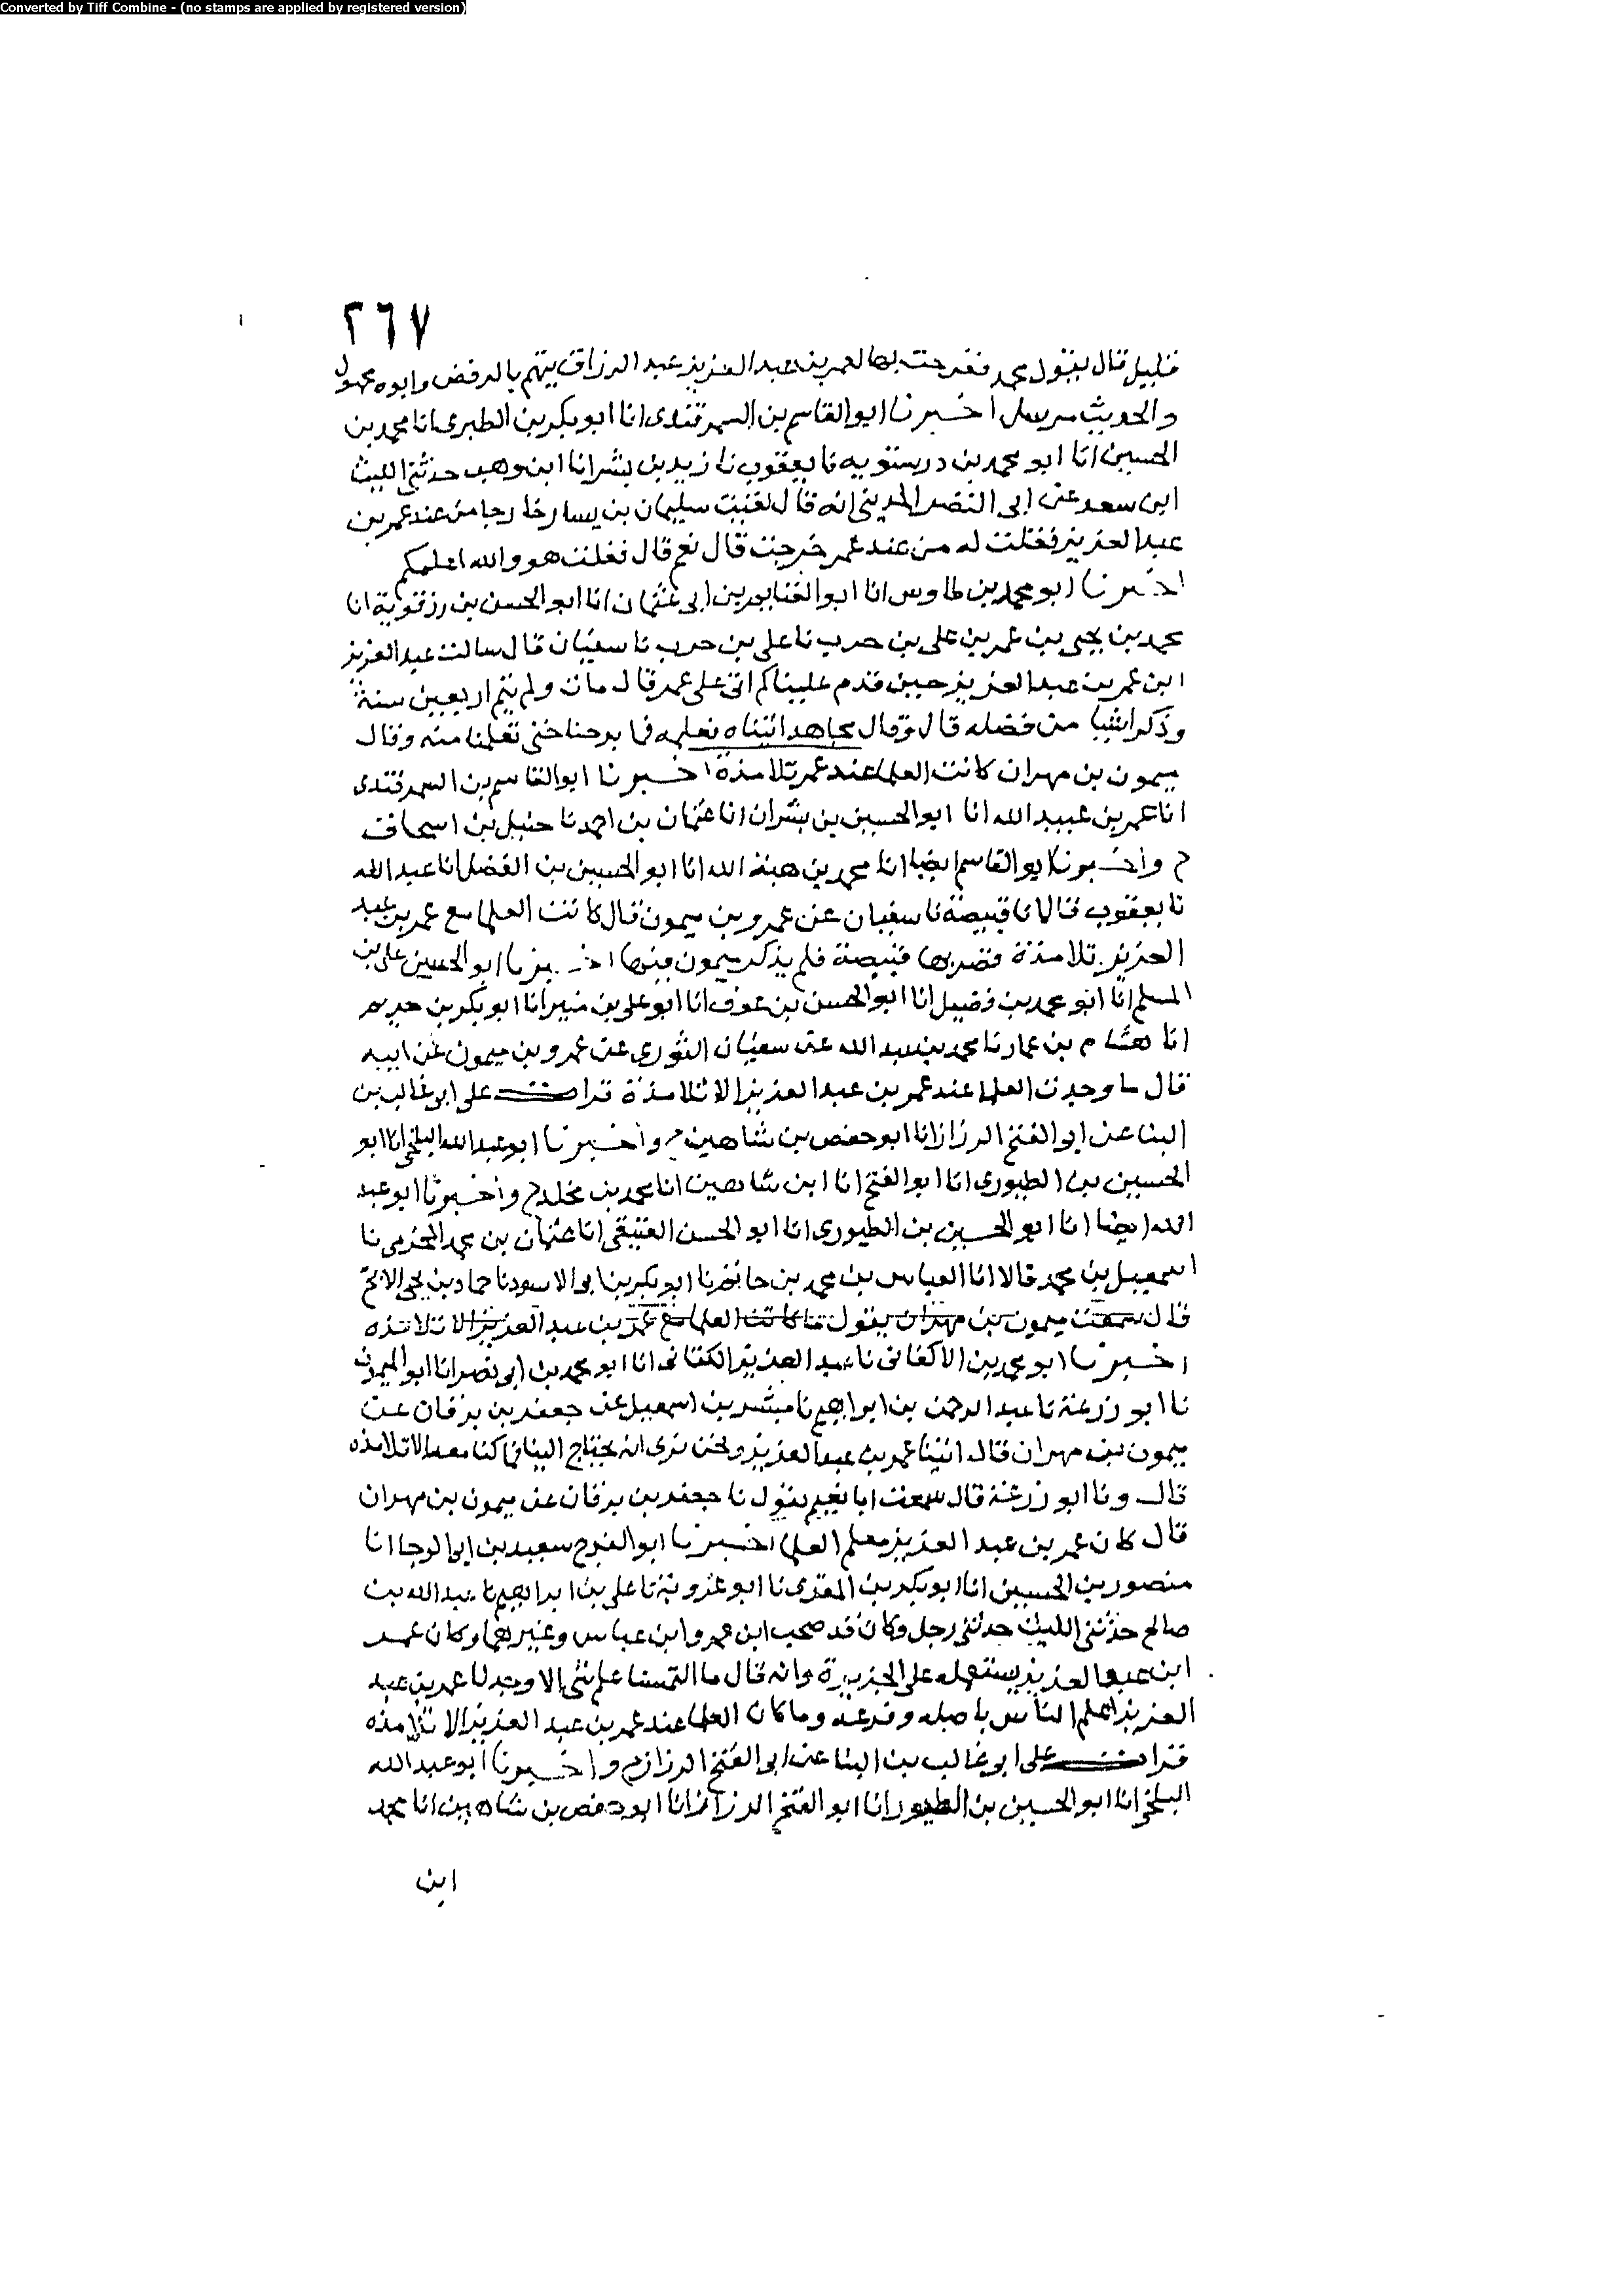 Converted by Tiff Combine - (no stamps are applied by registered version)
٢٦٧
قليل قال يقول محمد ففرحت بها لعمر بن عبد العزيز عبد الرزاق يتهم بالرفض وابوه مجهول
والحديث مرسل اخبرنا ابو القاسم بن السمرقندى انا ابو بكر بن الطبرى انا محمد بن
الحسين انا ابو محمد بن درستويه نا يعقوب نا زيد بن بشر انا ابن وهب حدثنى الليث
ابن سعد عن ابى النضر المدينى انه قال لقيت سليمان بن يسار خارجا من عند عمر بن
عبد العزيز فقلت له من عند عمر خرجت قال نعم قال فقلت هو والله اعلمكم
اخبرنا ابو محمد بن طاوس انا ابو الغنايم بن ابى عثمان انا ابو الحسن بن رزقوية انا
محمد بن يحيى بن عمر بن على بن حرب نا على بن حرب نا سفيان قال سالت عبد العزيز
ابن عمر بن عبد العزيز حين قدم علينا كم اتى على عمر قال مات ولم يتم اربعين سنة
وذكر اشيا من فضله قال وقال مجاهد اتيناه نعلمه فما برحنا حتى تعلمنا منه وقال
ميمون بن مهران كانت العلما عند عمر تلامذة اخبرنا ابو القاسم بن السمرقندى
انا عمر بن عبيد الله انا ابو الحسين بن بشران انا عثمان بن احمد نا حنبل بن اسحاق
ح واخبرنا ابو القاسم ايضا انا محمد بن هبة الله انا ابو الحسين بن الفضل انا عبد الله
نا يعقوب قالا نا قبيصة نا سفيان عن عمرو بن ميمون قال كانت العلما مع عمر بن عبد
العزيز تلامذة قبيصة فلم يذكر ميمون فيها اخبرنا ابو الحسين على بن
المسلم انا ابو محمد بن فضيل انا ابو الحسن بن عوف انا ابو على بن منير انا ابو بكر بن خريم
انا هشام بن عمار نا محمد بن عبد الله عن سفيان الثورى عن عمرو بن ميمون عن ابيه
قال ما وجدت العلما عند عمر بن عبد العزيز الا تلامذة قرات على ابى غالب بن
البنا عن ابى الفتح الرزاز انا ابو حفص بن شاهين ح واخبرنا ابو عبد الله البلخى انا ابو
الحسين بن الطيورى انا ابو الفتح انا ابن شاهين انا محمد بن مخلد ح واخبرنا ابو عبد
الله ايضا انا ابو الحسين بن الطيورى انا ابو الحسن العتيقى انا عثمان بن محمد المخرمى نا
اسمعيل بن محمد قالا انا العباس بن محمد بن حاتم نا ابو بكر بن ابى الاسود نا حماد بن يحيى الابح
قال سمعت ميمون بن مهران يقول ما كانت العلما مع عمر بن عبد العزيز الا تلامذه
اخبرنا ابو محمد بن الاكفانى نا عبد العزيز الكتانى انا ابو محمد بن ابى نصر انا ابو الميمون
نا ابو زرعة نا عبد الرحمن بن ابراهيم نا مبشر بن اسمعيل عن جعفر بن برقان عن
ميمون بن مهران قال اتينا عمر بن عبد العزيز ونحن نرى انه يحتاج الينا فما كنا معه الا تلامذه
قال ونا ابو زرعة قال سمعت ابا نعيم يقول نا جعفر بن برقان عن ميمون بن مهران
قال كان عمر بن عبد العزيز معلم العلما اخبرنا ابو الفرج سعيد بن ابى الرجا انا
منصور بن الحسين انا ابو بكر بن المقرى نا ابو عروبة نا على بن ابراهيم نا عبد الله بن
صالح حدثنى الليث حدثنى رجل وكان قد صحب ابن عمر وابن عباس وغيرهما وكان عمر
ابن عبد العزيز يستعمله على الجزيرة وانه قال ما التمسنا علم شى الا وجدنا عمر بن عبد
العزيز اعلم الناس باصله وفرعه وما كان العلما عند عمر بن عبد العزيز الا تلامذه
قرات على ابى غالب بن البنا عن ابى الفتح الرزاز ح واخبرنا ابو عبد الله
البلخى انا ابو الحسين بن الطيورى انا ابو الفتح الرزاز انا ابو حفص بن شاهين انا محمد
ابن